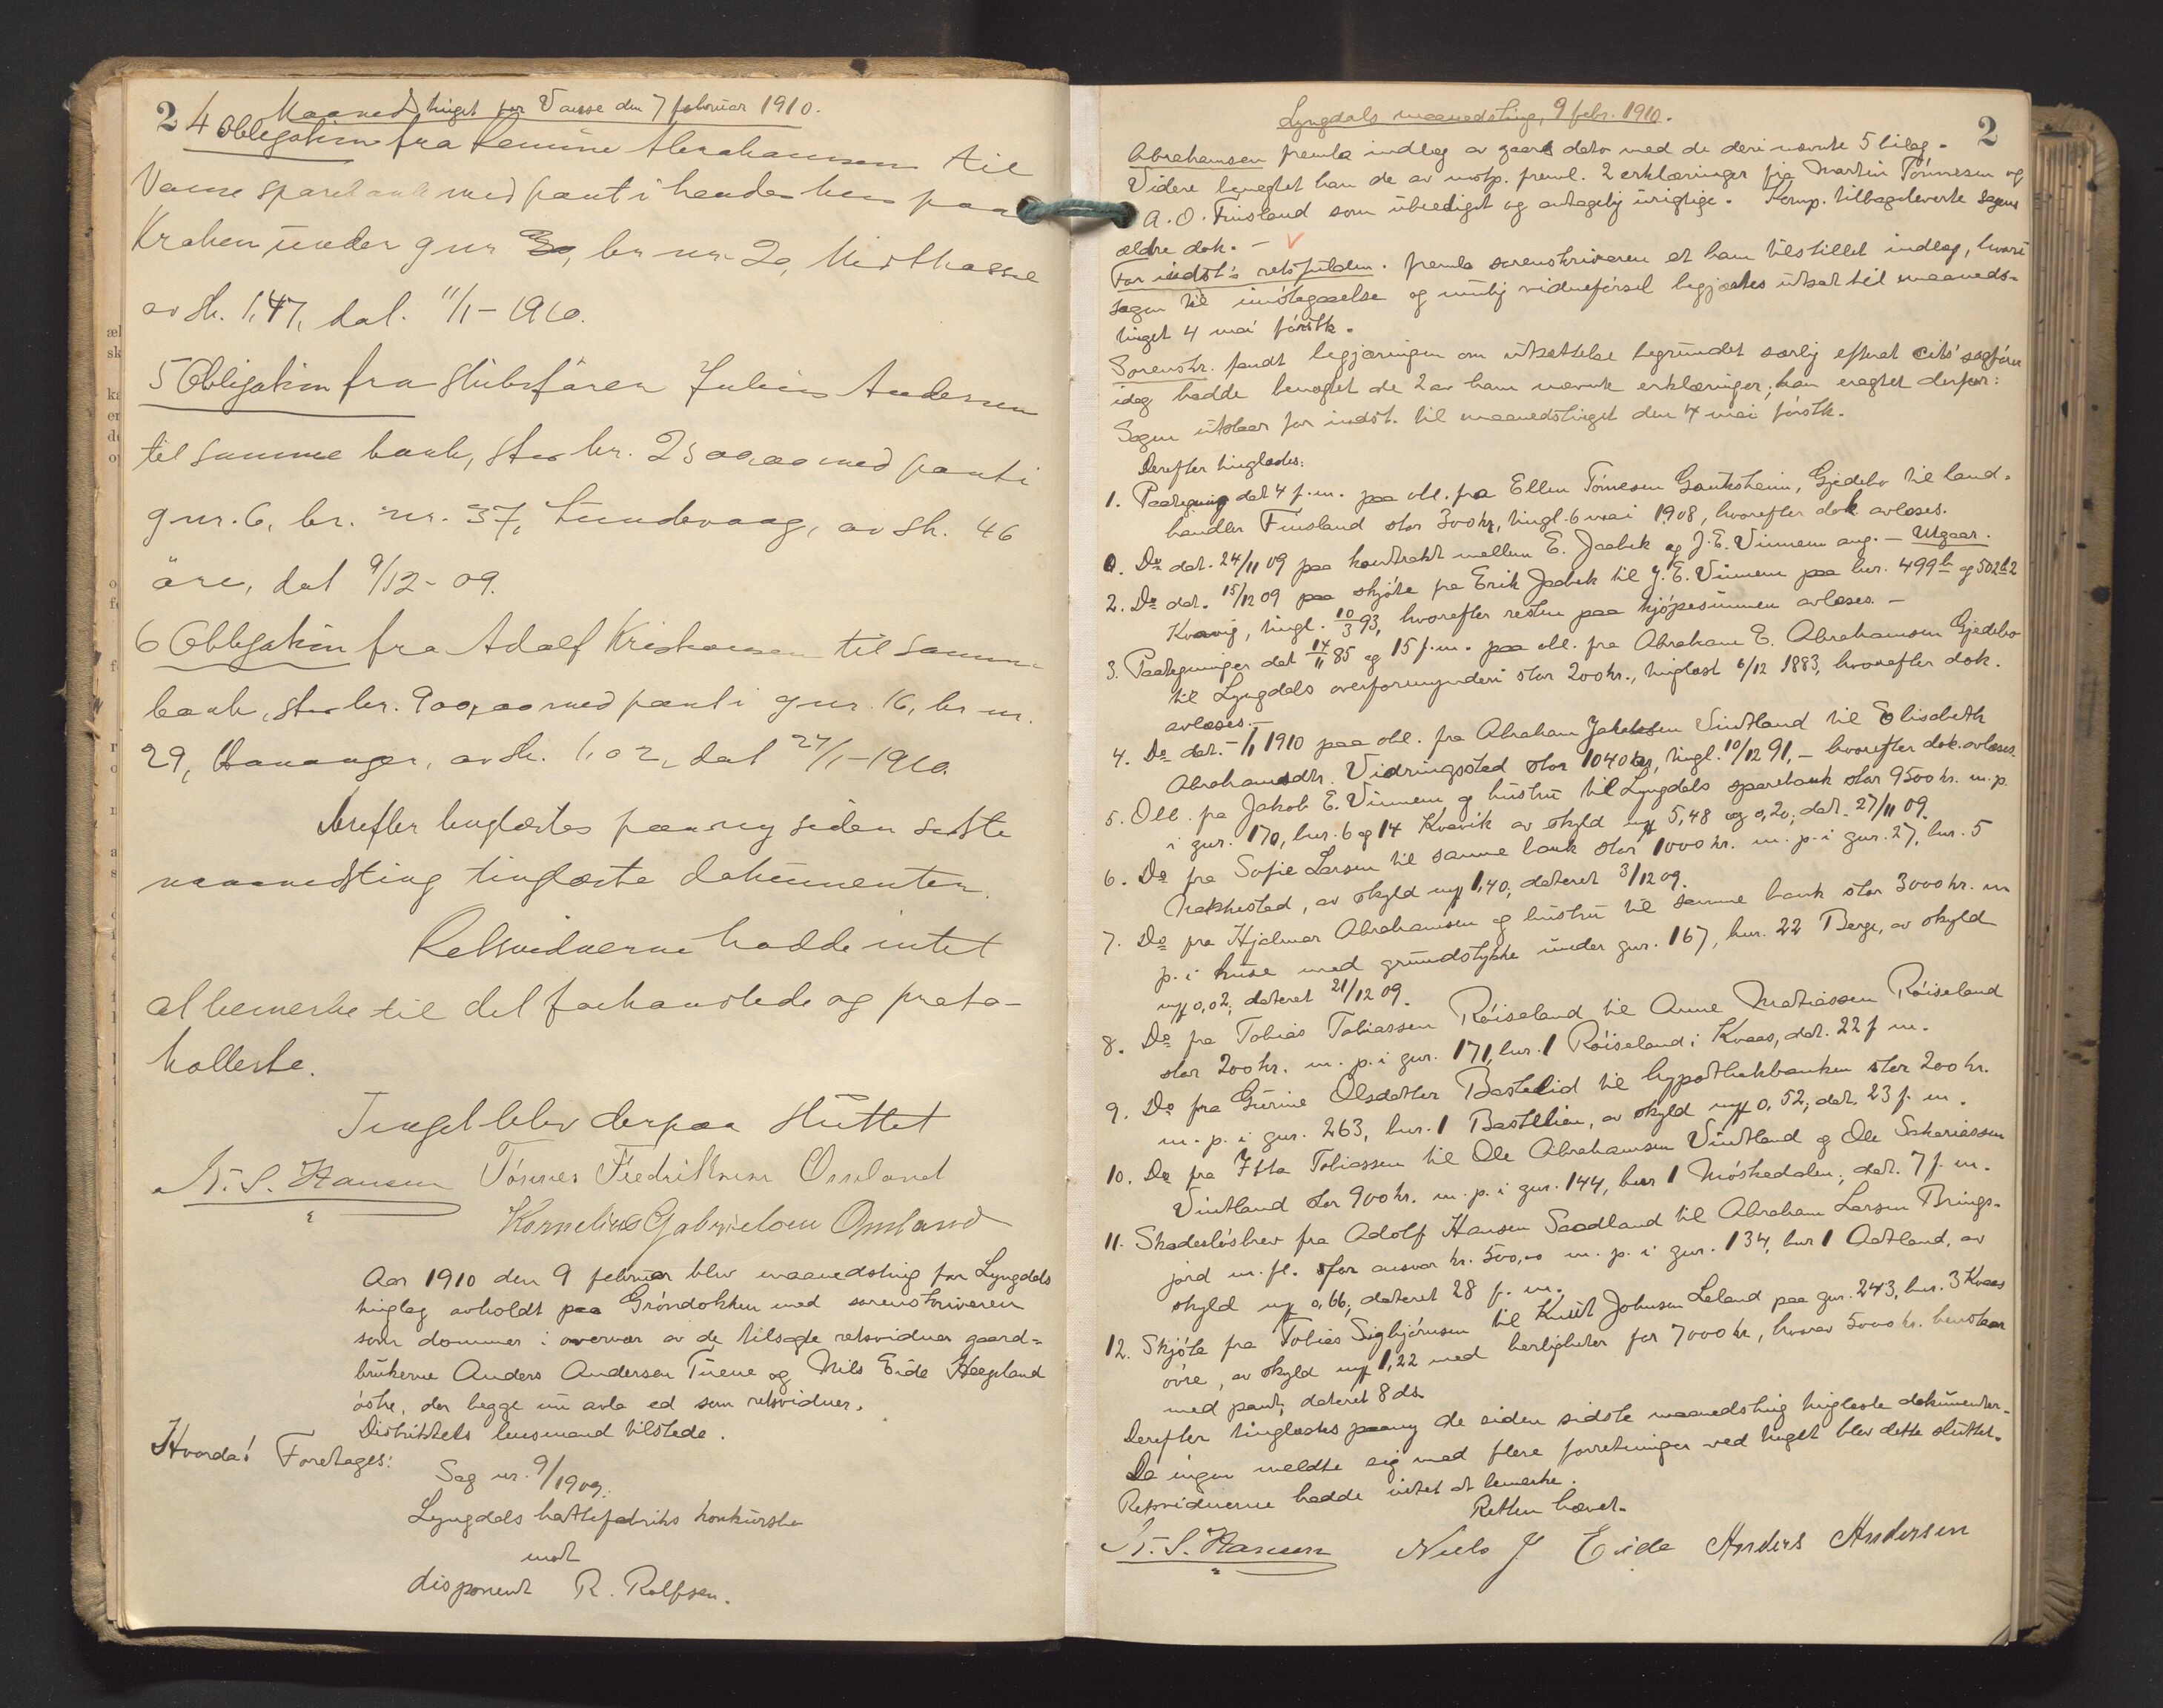 2
Maanedstinget for Vanse den 7 februar 1910.
4 Obligation fra Abrahamsen til
Vanse sparebank med pant i hendes hus paa
Kraken under gnr br. nr. 20, Midthassel
av sk. 1,47, dat. 11/1 - 1910.
5 Obligation fra Julius Andersen
til samme bank, stor kr. 2500,00 med pant i
gnr. 6, br. nr. 37, Lundevaag, av sk. 46
öre, dat 9/12 - 09.
6 Obligation fra Adolf Kristiansen til samme
bank, stor kr. 900,00 med pant i gnr. 16, br nr.
29, Hananger, av sk. 1,02, dat 27/1 - 1910.
Derefter tinglæstes paany siden sidste
maanedsting tinglæste dokumenter.
Retsvidnerne hadde intet
at bemerke til det forhandlede og proto-
kollerte.
Tinget blev derpaa sluttet
N. S. Hansen Tönnes Fredriksen Omland
Kornelius Gabrielsen Omland
Aar 1910 den 9 februar blev maanedsting for Lyngdals
tinglag avholdt paa Gröndokken med sorenskriveren
som dommer i overvær av de tilsagte retsvidner gaard-
brukerne Anders Andersen og Nils Eide Hægeland
östre, der begge nu avla ed som retsvidner.
Distriktets lensmand tilstede.
Hvorda! Foretages:
Sag nr. 9/1909.
Lyngdals hattefabriks konkursbo
mot
disponent R. Rolfsen.
Lyngdals maanedsting, 9 febr. 1910.
2
Abrahamsen fremla indlæg av gaars dato med de deri nævnte 5 bilag.
Videre benegtet han de av motp. freml. 2 erklæringer fra Martin Tönnesen og
A. O. Finsland som ubeediget og antagelig urigtige. Komp. tilbageleverte sagens
ældre dok. -
For indst's retsfulden. fremla sorenskriveren et ham tilstillet indlæg, hvori
sagen til imötegaaelse og mulig vidneförsel begjærtes utsat til maaneds-
tinget 4 mai förstk.
Sorenskr. fandt begjæringen om utsættelse begrundet særlig efterat cits' sagförer
idag hadde benegtet de 2 av ham nævnte erklæringer; han eragtet derfor:
Sagen utstaar for indst. til maanedstinget den 4 mai förstk.
Derefter tinglæstes:
1. Paategning dat 4 f.m. paa obl. fra Ellen Tönnesen Gjedebo til land-
handler Finsland stor 300 kr, tingl. 6 mai 1908, hvorefter dok avlæses.
Do dat. 24/11 09 paa kontrakt mellem E. Jaabek og J. E. Vinnem ang. - Utgaar.
2. Do dat. 15/12 09 paa skjöte fra Erik Jaabek til J. E. Vinnem paa lnr. 499b og 502b2
Kvavig, tingl. 10/3 93, hvorefter resten paa kjöpesummen avlæses. -
3. Paategninger dat 14/11 85 og 15 f.m. paa obl. fra Abraham E. Abrahamsen Gjedebo
til Lyngdals overformynderi stor 200 kr., tinglæst 6/12 1883, hvorefter dok.
avlæses. -
4. Do dat. - /1 1910 paa obl. fra Abraham Jakobsen Vintland til Elisabeth
Abrahamsdtr. Vidringstad stor 1040 kr, tingl. 10/12 91, - hvorefter dok. avlæses.
5. Obl. fra Jakob E. Vinnem og hustru til Lyngdals sparebank stor 9500 kr. m. p.
i gnr. 170, bnr. 6 og 14 Kvavik av skyld my 5,48 og 0,20; dat. 27/11 09.
6. Do fra Sofie Larsen til samme bank stor 1000 kr. m. p. i gnr. 27, bnr. 5
Nakkestad, av skyld my 1,40, dateret 3/12 09.
7. Do fra Hjalmar Abrahamsen og hustru til samme bank stor 3000 kr. m
p. i huse med grundstykke under gnr. 167, bnr. 22 Berge, av skyld
my 0,02; dateret 21/12 09.
8. Do fra Tobias Tobiassen Röiseland til Anne Matiassen Röiseland
stor 200 kr. m. p. i gnr. 171, bnr. 1 Röiseland i Kvaas, dat. 22 f m.
9. Do fra Gurine Olsdatter Bastelid til hypothekbanken stor 200 kr.
m. p. i gnr. 263, bnr. 1 Bastelien, av skyld my 0,52, dat. 23 f. m.
10. Do fra Itta Tobiassen til Ole Abrahamsen Vintland og Ole Sakariassen
Vintland stor 900 kr. m. p. i gnr. 144, bnr 1 Möskedalen, dat. 7 f. m.
11. Skadeslösbrev fra Adolf Hansen Saadland til Abraham Larsen Brings-
jord m. fl. stor ansvar kr. 500,00 m. p. i gnr. 134, bnr 1 Aatland, av
skyld my 0,66; dateret 28 f. m.
12. Skjöte fra Tobias Sigbjörnsen til Knut Johnsen Leland paa gnr. 243, bnr. 3 Kvaas
övre, av skyld my 1,22 med herligheter for 7000 kr, hvorav 5000 kr. henstaar
med pant; dateret 8 ds.
Derefter tinglæstes paany de siden sidste maanedsting tinglæste dokumenter.
Da ingen meldte sig med flere forretninger ved tinget blev dette sluttet.
Retsvidnerne hadde intet at bemerke.
Retten hævet.
N. S. Hansen Niels J Eide Anders Andersen